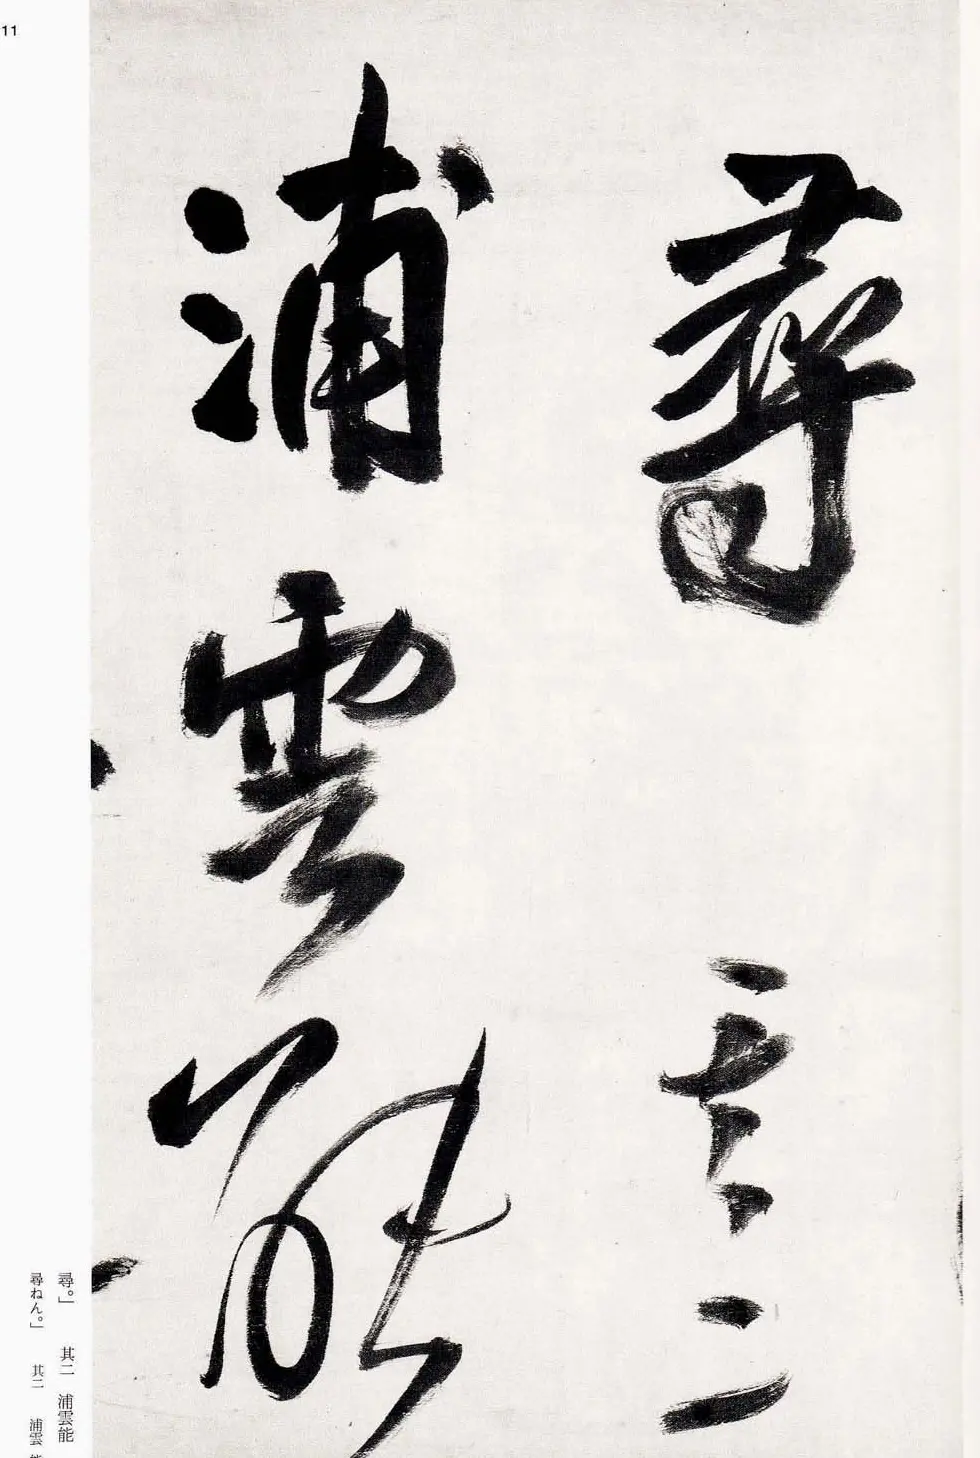 11
尋其二
浦雲能
尋。」 其二 浦雲能
尋ねん。」 其二 浦雲